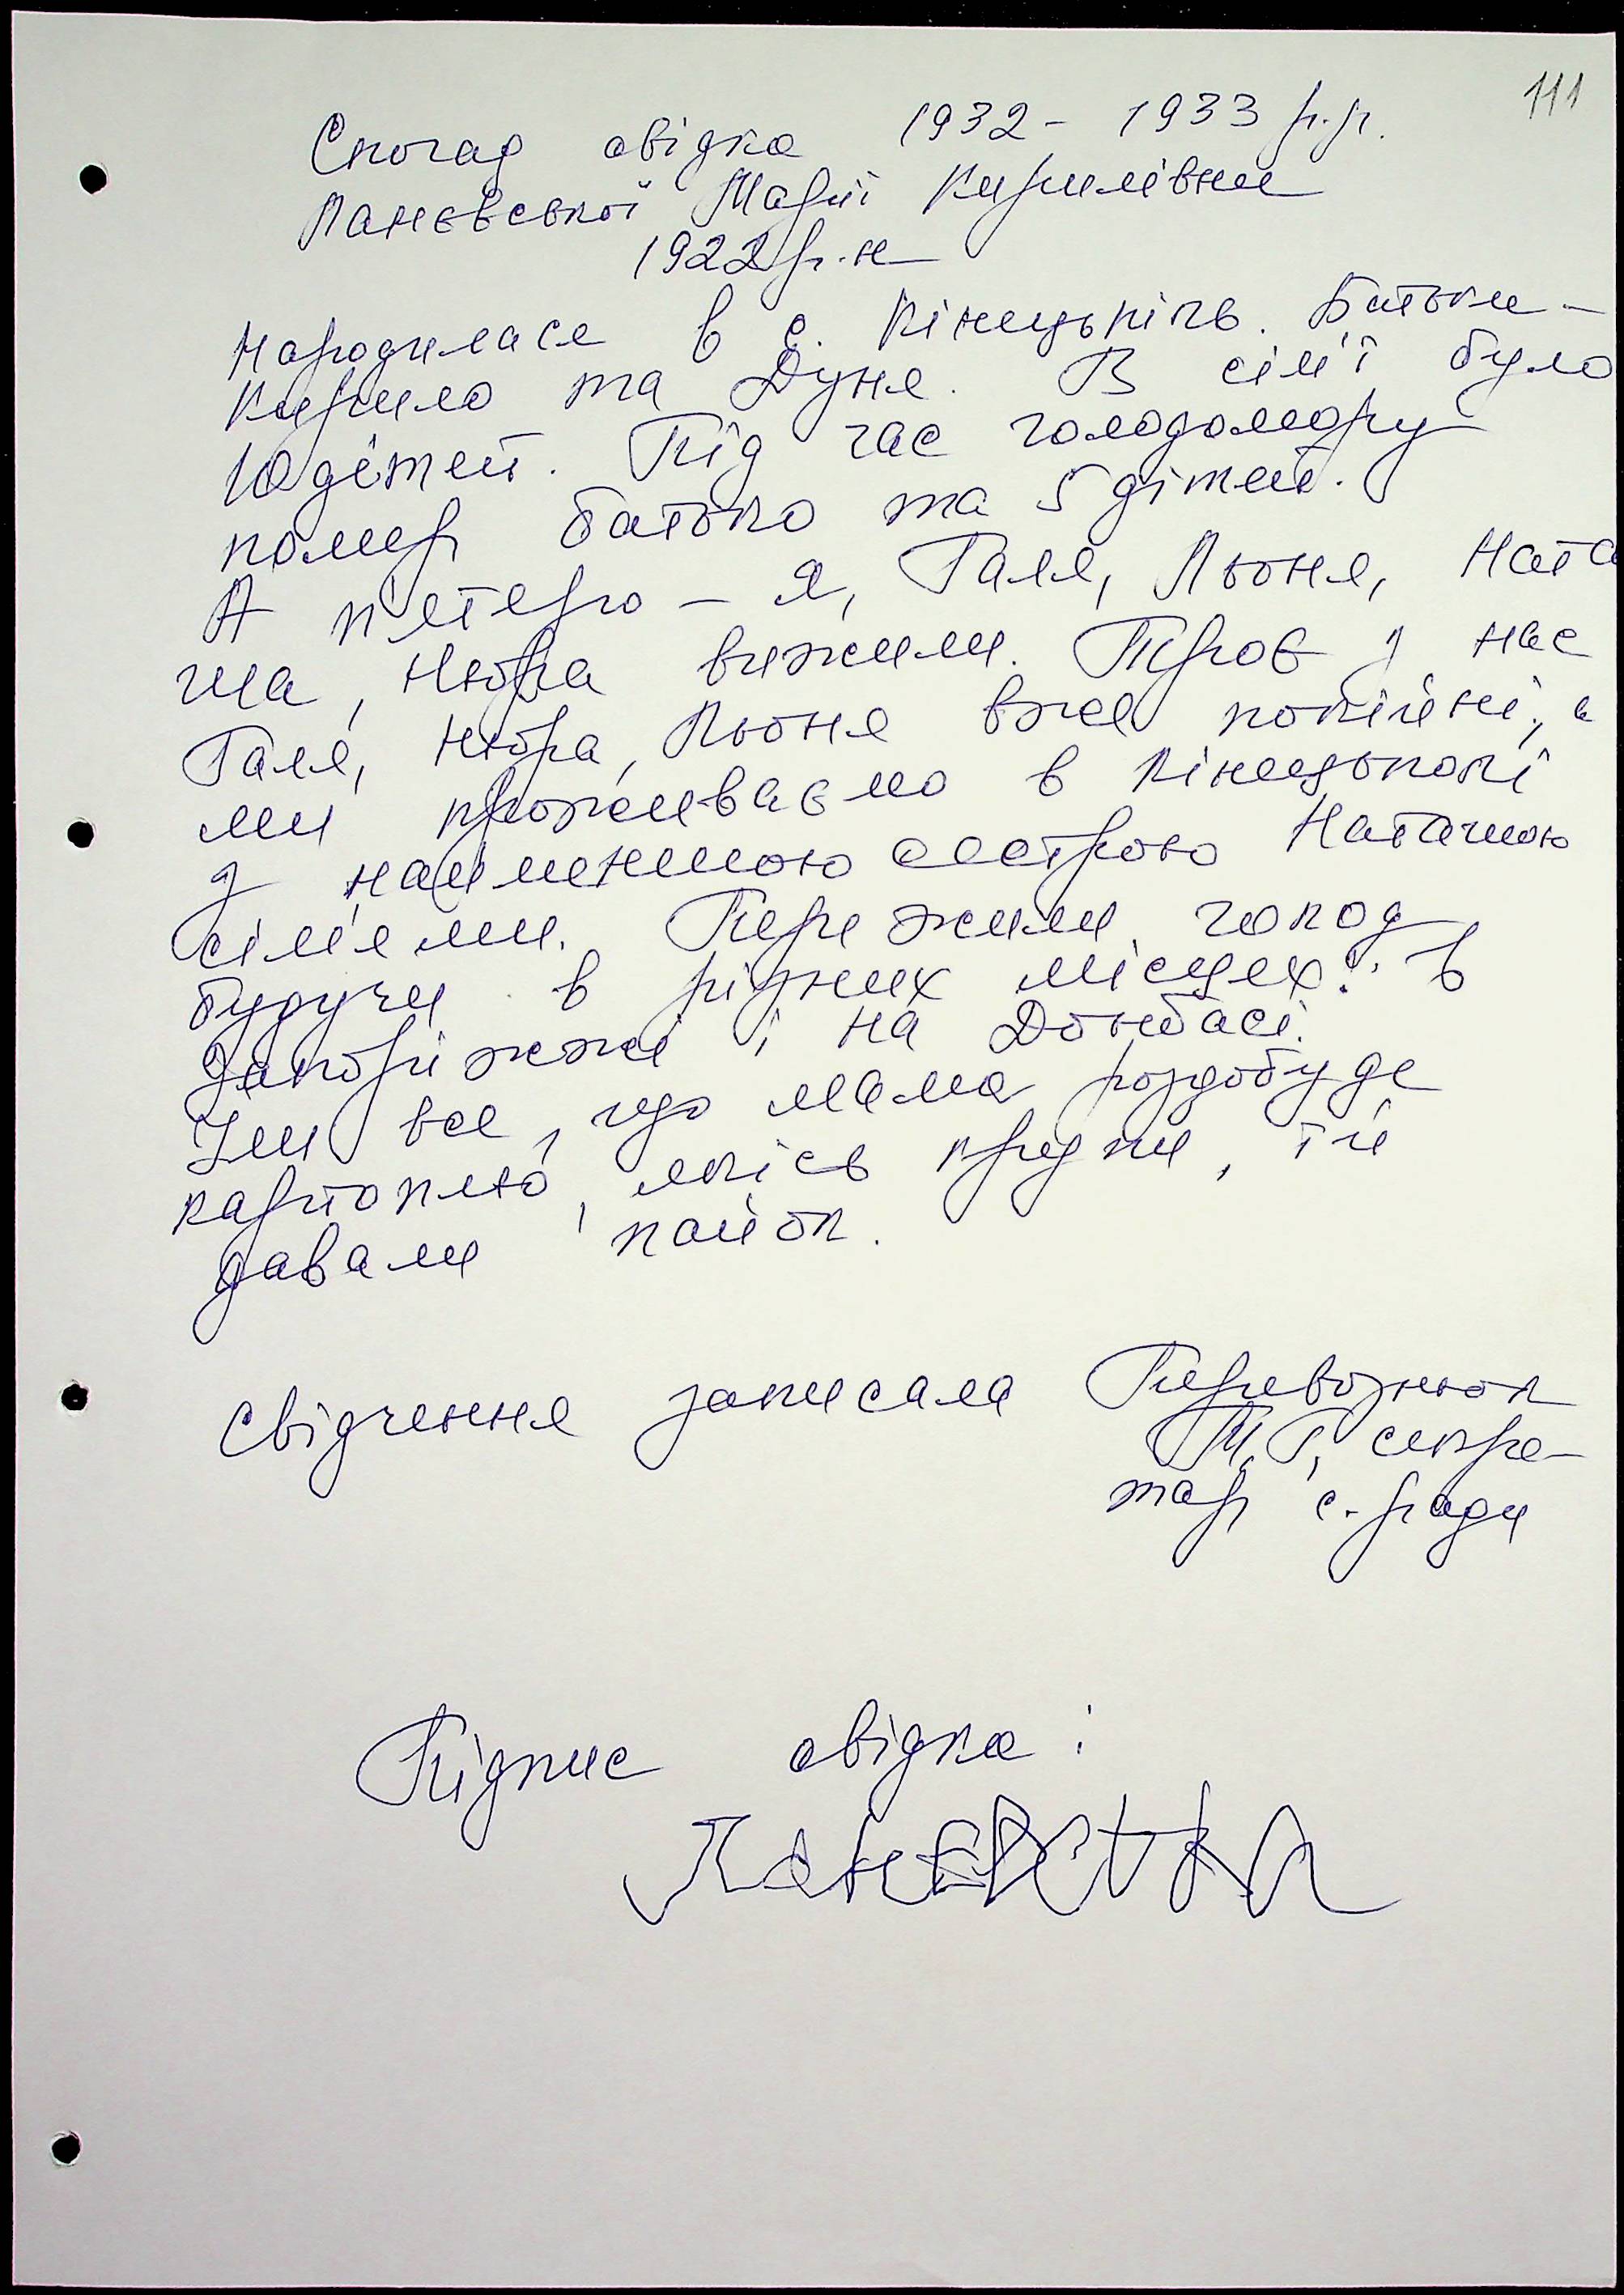 111
Спогад свідка 1932-1933 р.р.
Ланєвської Марії Кирилівни
1922 р.н
Народилася в с. Кінецьпіль. Батьки -
Кирило та Дуня. В сім'ї було
10 дітей. Під час голодомору
помер батько та 5 дітей.
А п'ятеро - я, Галя, Льоня, Ната
ша, Нюра вижили. Троє з нас
Галя, Нюра, Льоня вже покійні, а
ми проживаємо в Кінецьполі
з найменшою сестрою Наташою
сім'ями. Пережили голод
будучи в різних місцях: в
Запоріжжі і на Донбасі.
Їли все, що мама роздобуде
картоплю, якісь крупи, їй
давали пайок.
Свідчення записала Перевознюк
М.Г, секре-
тар с. ради
Підпис свідка: